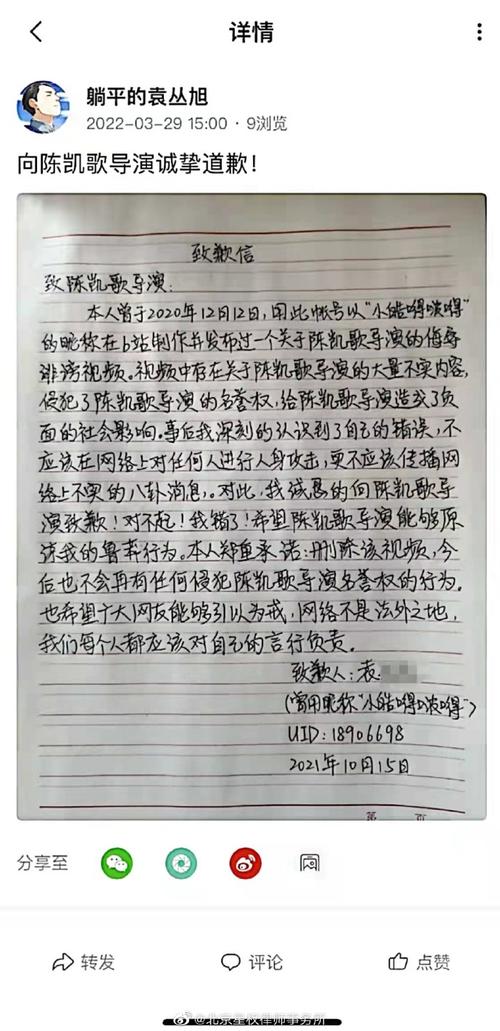 详情
躺平的袁丛旭
2022-03-29 15:00 · 9浏览
向陈凯歌导演诚挚道歉！
致歉信
致陈凯歌导演：
本人曾于2020年12月12日，用此帐号以“小皓嘚啵嘚”
的昵称在b站制作并发布过一个关于陈凯歌导演的侮辱
诽谤视频。视频中存在关于陈凯歌导演的大量不实内容，
侵犯了陈凯歌导演的名誉权，给陈凯歌导演造成了负
面的社会影响。事后我深刻的认识到了自己的错误，不
应该在网络上对任何人进行人身攻击，更不应该传播网
络上不实的八卦消息。对此，我诚恳的向陈凯歌导
演致歉！对不起！我错了！希望陈凯歌导演能够原
谅我的鲁莽行为。本人郑重承诺：删除该视频，今
后也不会再有任何侵犯陈凯歌导演名誉权的行为。
也希望广大网友能够引以为戒，网络不是法外之地，
我们每个人都应该对自己的言行负责。
致歉人：袁
（曾用昵称“小皓嘚啵嘚”）
UID：18906698
2021年10月15日
第 页
分享至
转发
评论
点赞
@北京星权律师事务所